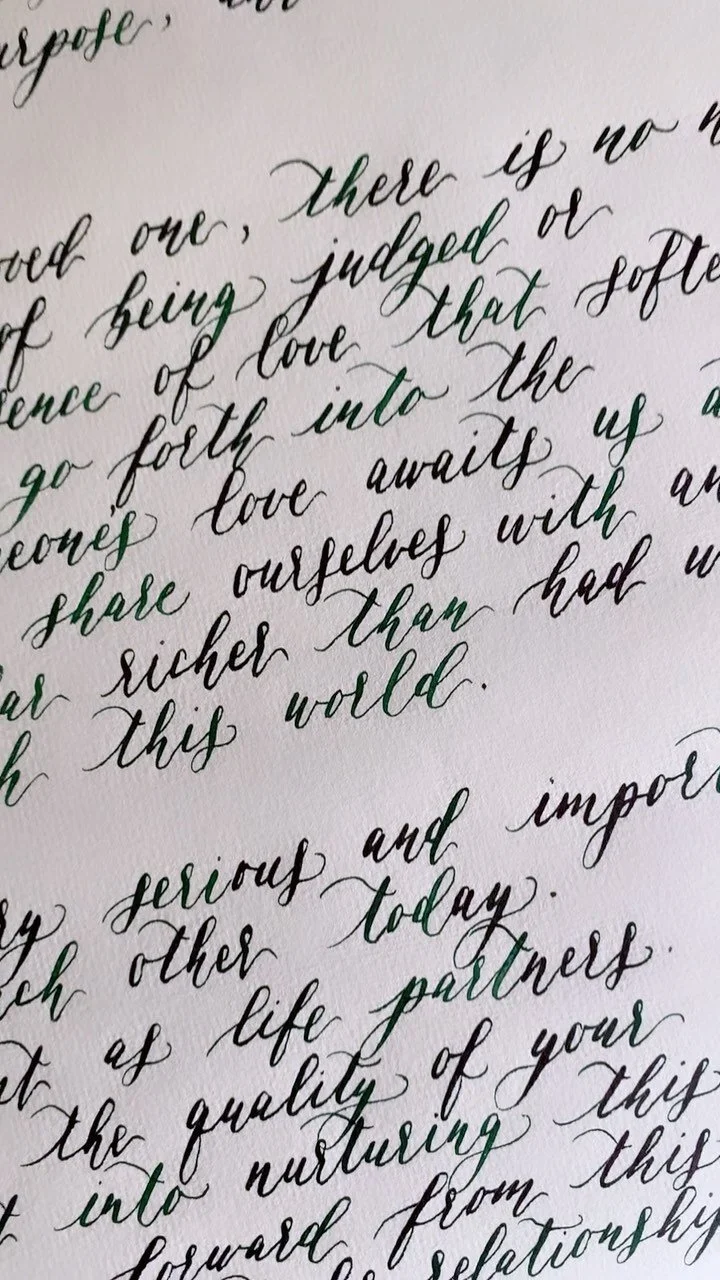 urpose,
oved one, there is no
of being judged or
ence of love that softe
go forth into the
eone's love awaits us a
share ourselves with an
ar richer than had w
h this world.
ry serious and impor
ch other today.
as life partners.
the quality of your
into nurturing this
forward from this
relationship